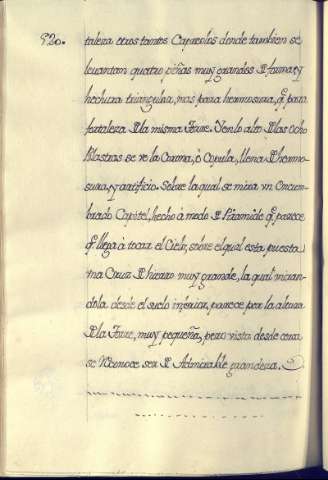 520.
taleza otros tantos Capreolos donde tambien se
levantam quatro peñas muy grandes D forma, y
hechura triangular, mas para hermosura, q̃ para
fortaleza D la misma Torre. Y en lo alto D las Ocho
Pilastras se ve la Corona, ò Copula, llena D hermo-
sura, y artificio. Sobre la qual se mira vn Encum-
brado Capitel, hecho à modo D Piramide q̃ parece
q̃ llega à tocar el Cielo, sobre el qual esta puesta
vna Cruz D hierro muy grande, la qual miran-
dola desde el suelo inferior, parece por la alteza
D la Torre, muy pequeña, pero vista desde cerca
se Reconoce ser D Admirable grandeza.